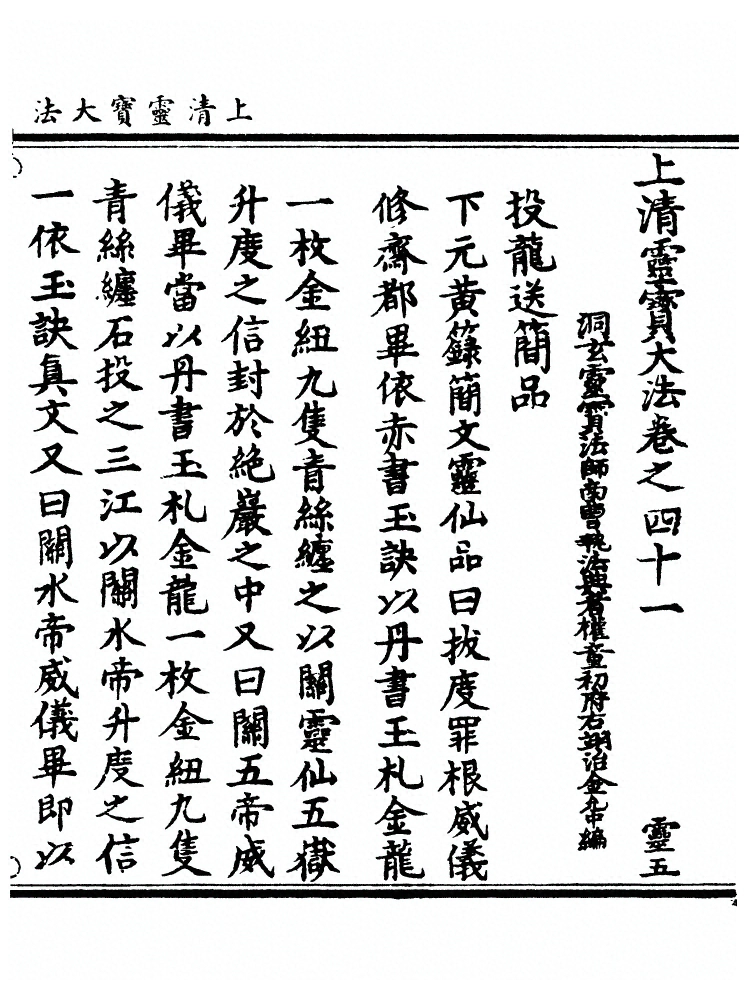 上清靈寶大法
上清靈寶大法卷之四十一 靈五
洞玄靈寶法師南曹執法典者權童初府右翊治金允中編
投龍送簡品
下元黃籙簡文靈仙品曰拔度罪根威儀
修齋都畢依赤書玉訣以丹書玉札金龍
一枚金紐九隻青絲纏之以關靈仙五嶽
升度之信封於絶巖之中又曰關五帝威
儀畢當以丹書玉札金龍一枚金紐九隻
青絲纏石投之三江以關水帝升度之信
一依玉訣眞文又曰關水帝威儀畢即以